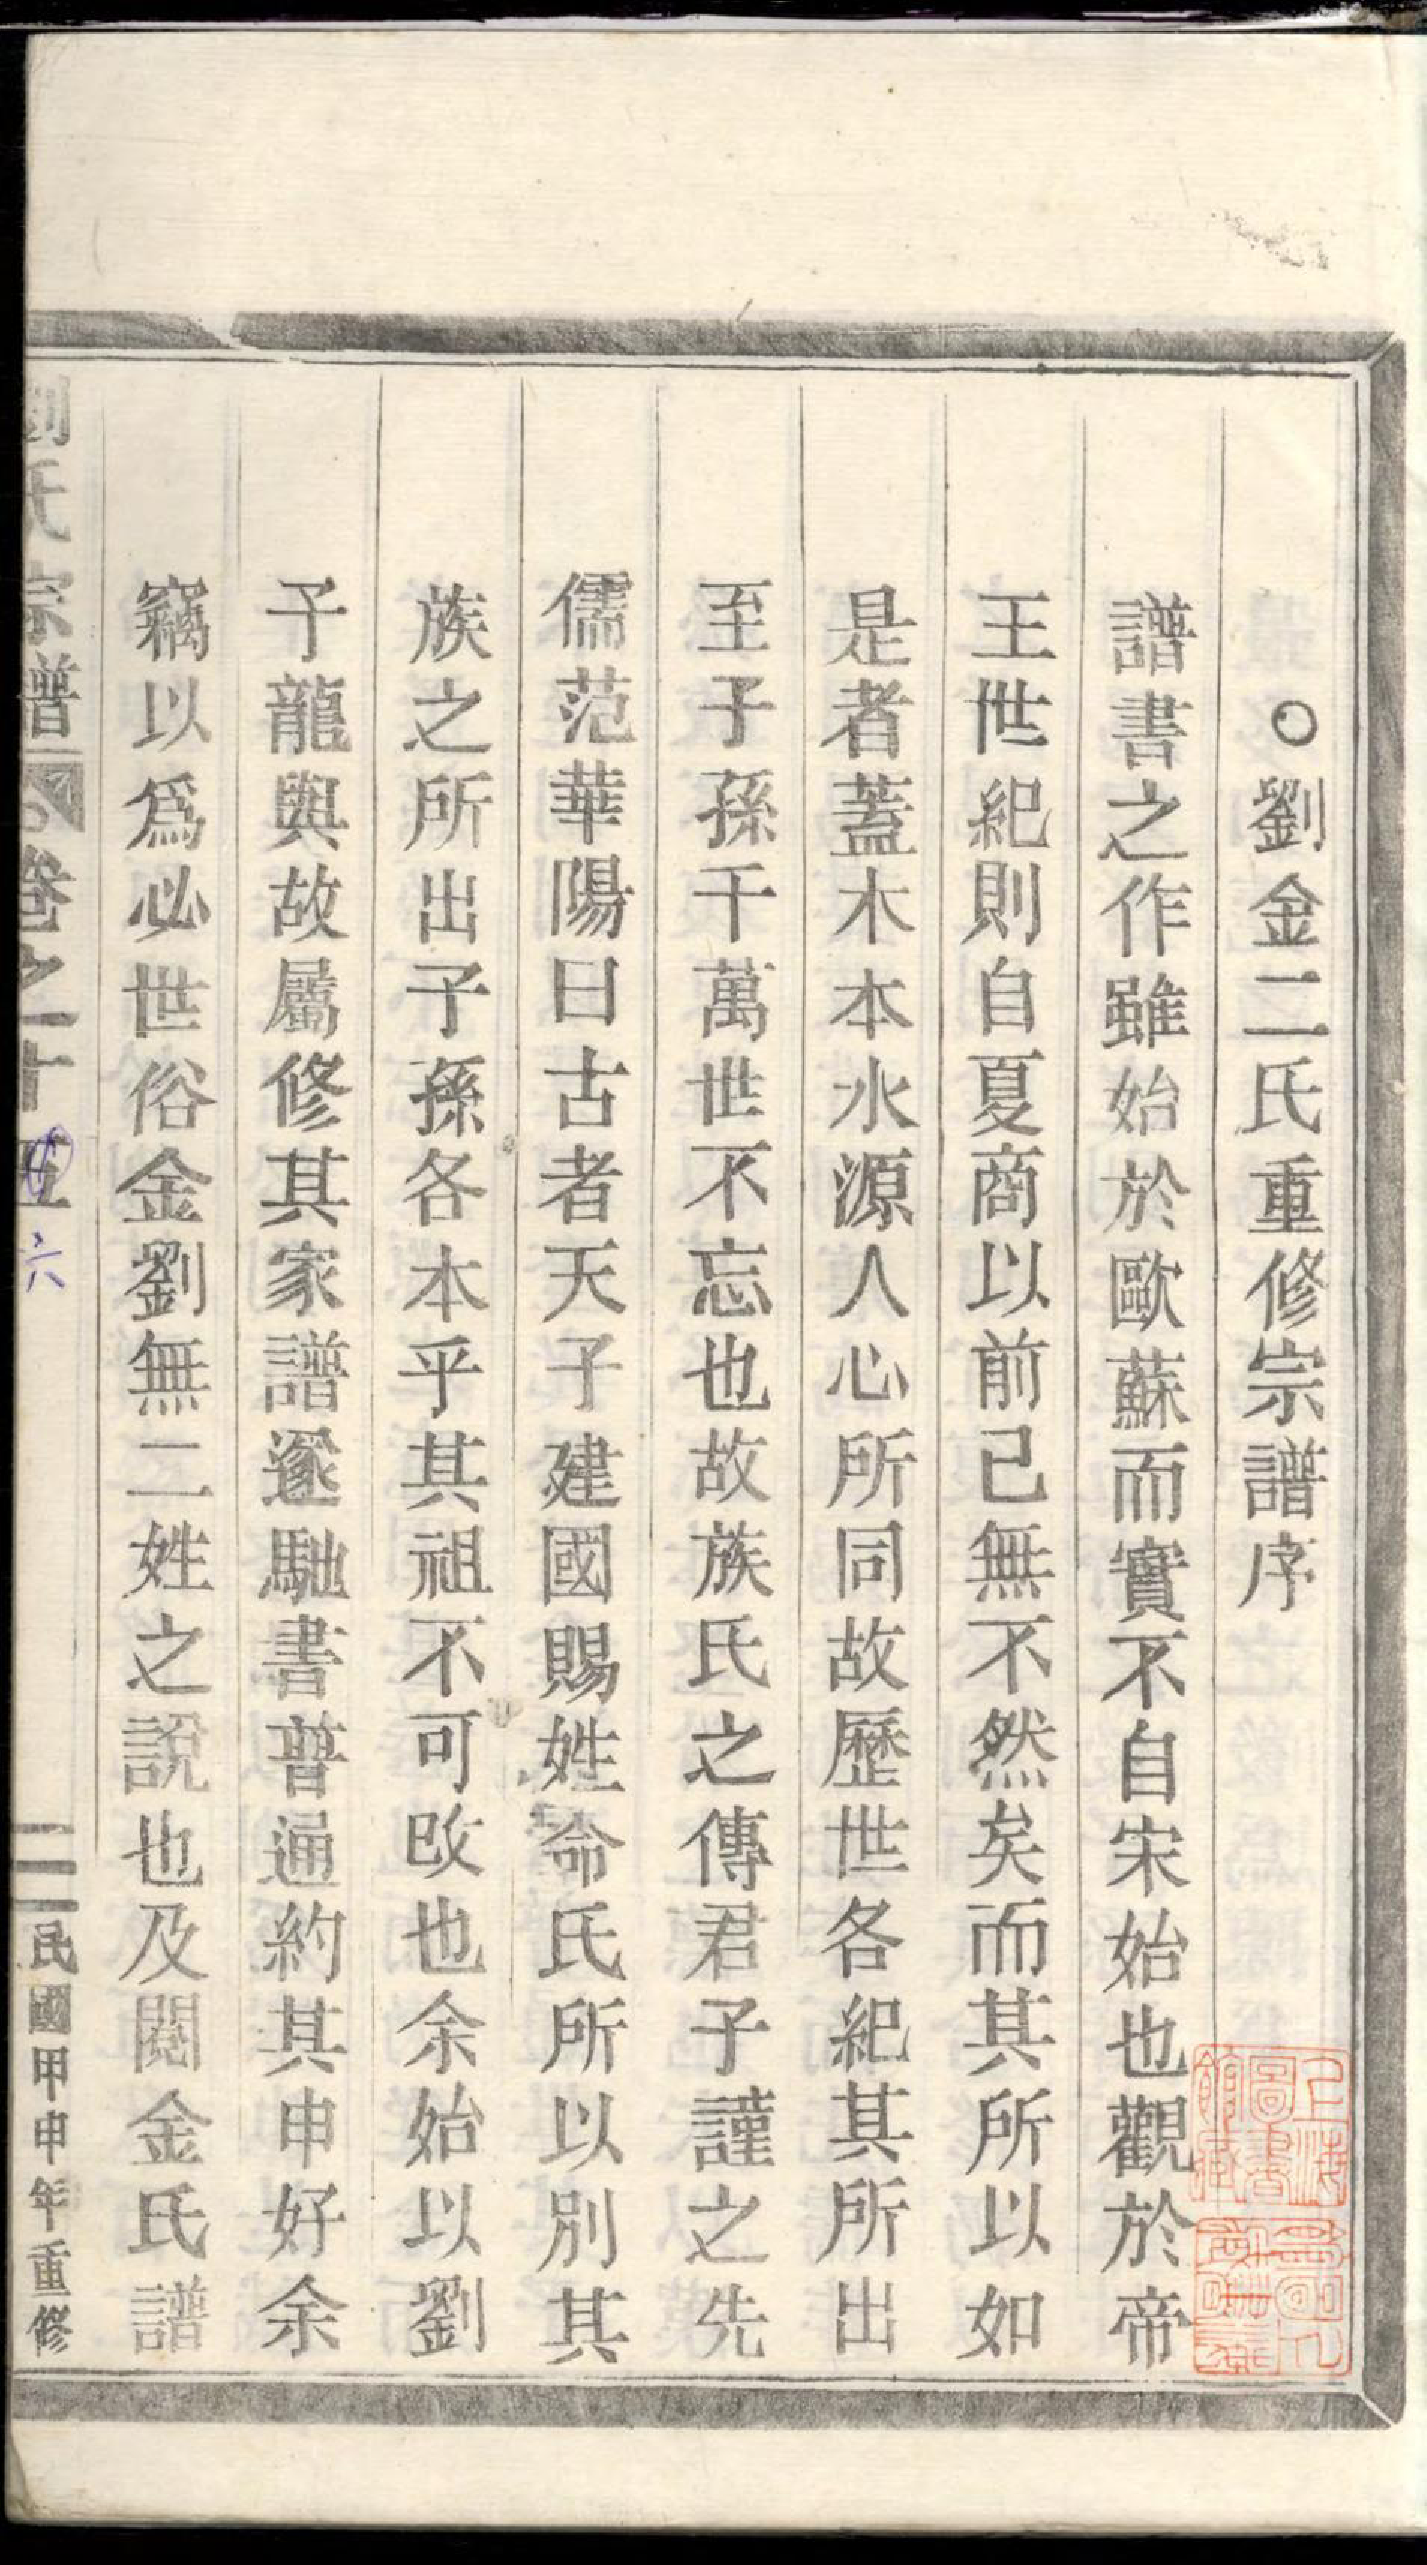 ○劉金二氏重修宗譜序
譜書之作雖始於歐蘇而實不自宋始也觀於帝
王世紀則自夏商以前已無不然矣而其所以如
是者蓋木本水源人心所同故歷世各紀其所出
至子孫千萬世不忘也故族氏之傳君子謹之先
儒范華陽曰古者天子建國賜姓命氏所以別其
族之所出子孫各本乎其祖不可改也余始以劉
子龍與故屬修其家譜遂馳書普通約其申好余
竊以爲必世俗金劉無二姓之說也及閱金氏譜
劉氏宗譜 卷之十五 六
二 民國甲申年重修
上海圖書館藏